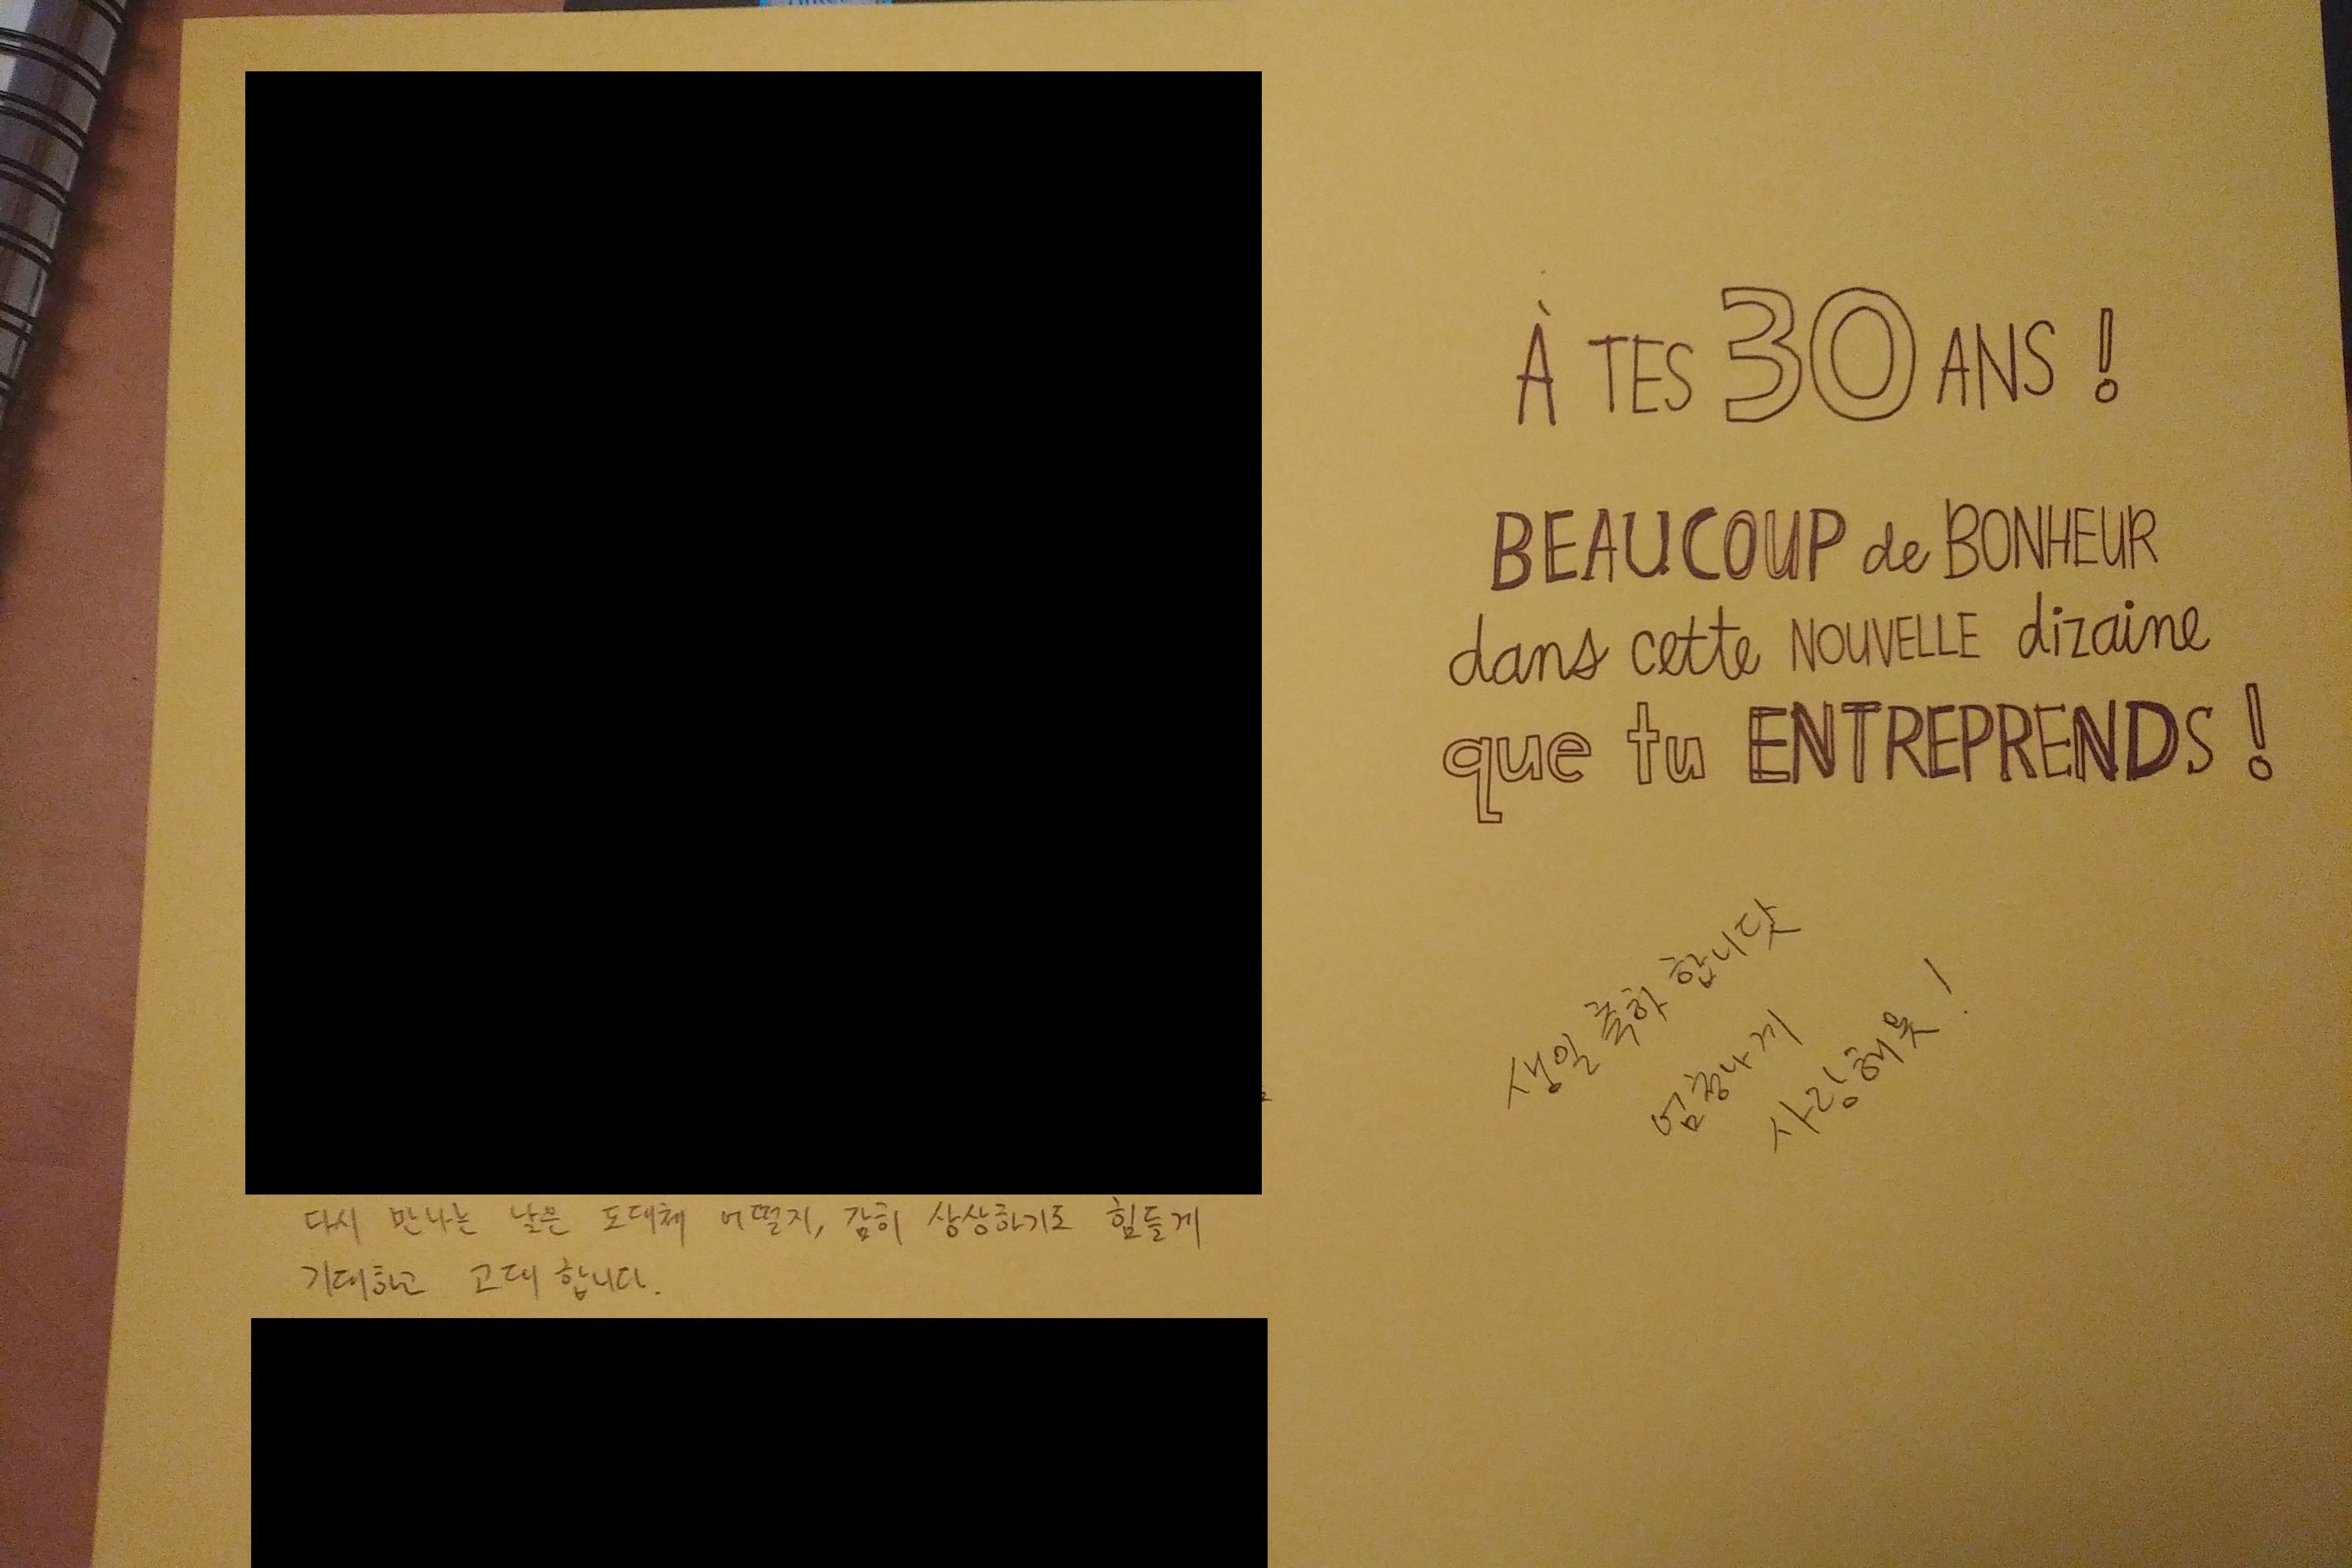 다시 만나는 날은 도대체 어떨지, 감히 상상하기도 힘들게
기대하고 고대합니다.
À TES 30 ANS !
BEAUCOUP de BONHEUR
dans cette NOUVELLE dizaine
que tu ENTREPRENDS !
생일 축하 합니닷
엄청나게
사랑해욧!